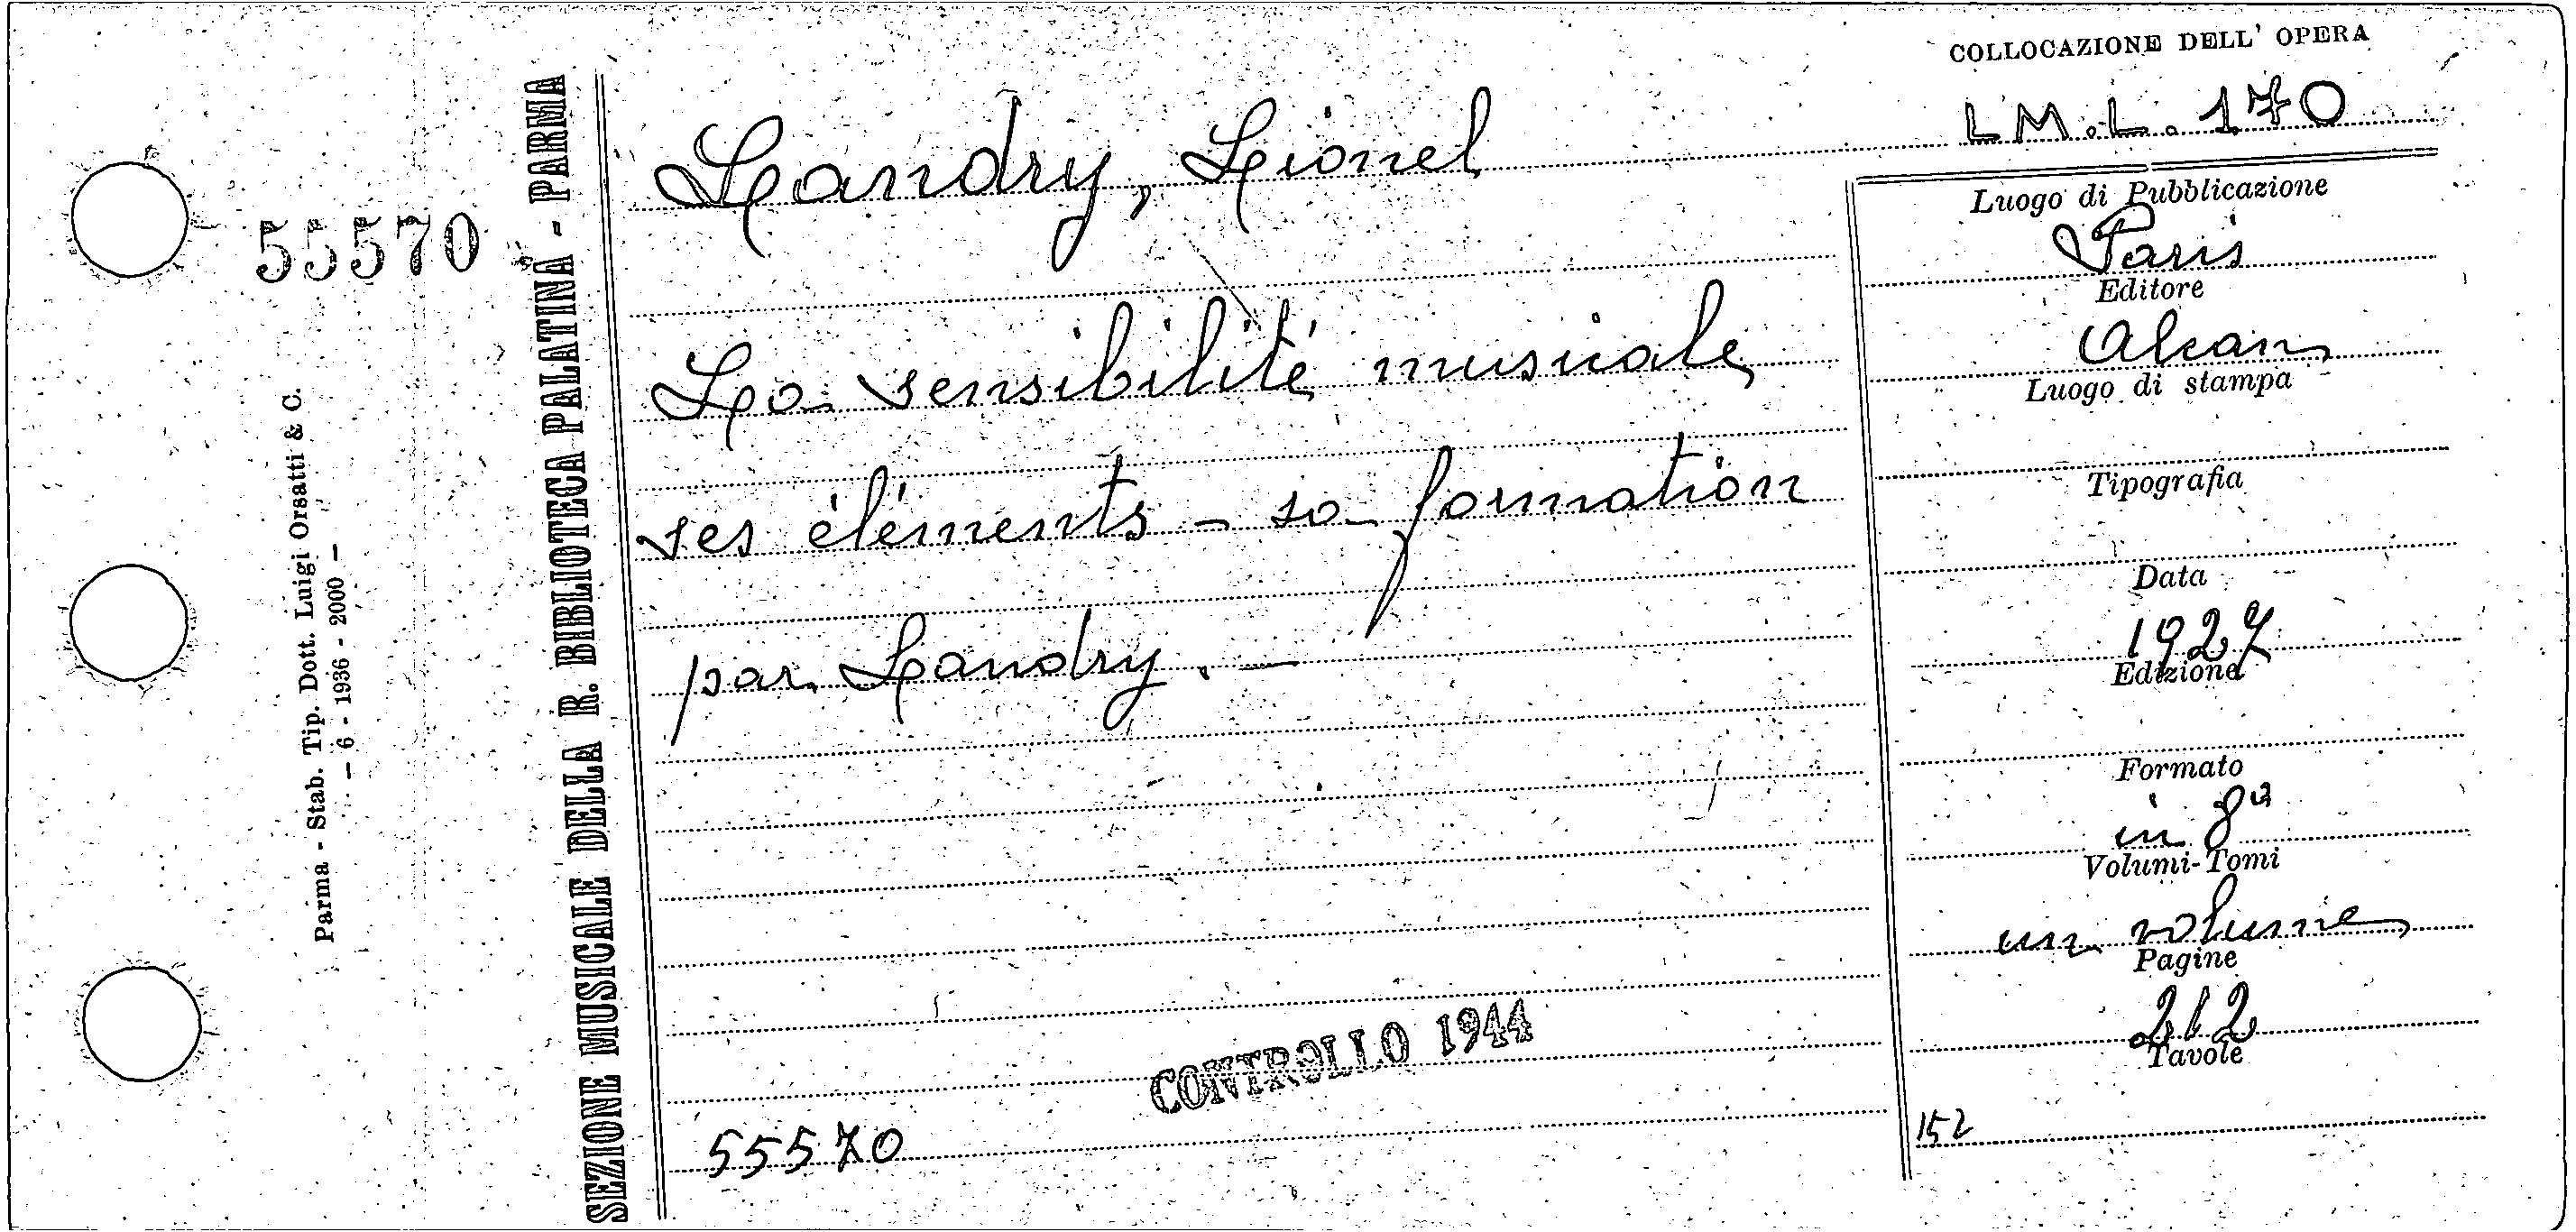 COLLOCAZIONE DELL' OPERA
LM.L.170
Landry, Lionel
La sensibilité musicale
ses éléments - sa formation
par Landry. -
Luogo di Pubblicazione
Paris
Editore
Alcan
Luogo di stampa
Tipografia
Data
1927
Edizione
Formato
in 8°
Volumi-Tomi
un volume
Pagine
212
Tavole
152
CONTROLLO 1944
55570
55570
Parma - Stab. Tip. Dott. Luigi Orsatti & C.
— 6 - 1936 - 2000 —
SEZIONE MUSICALE DELLA R. BIBLIOTECA PALATINA - PARMA